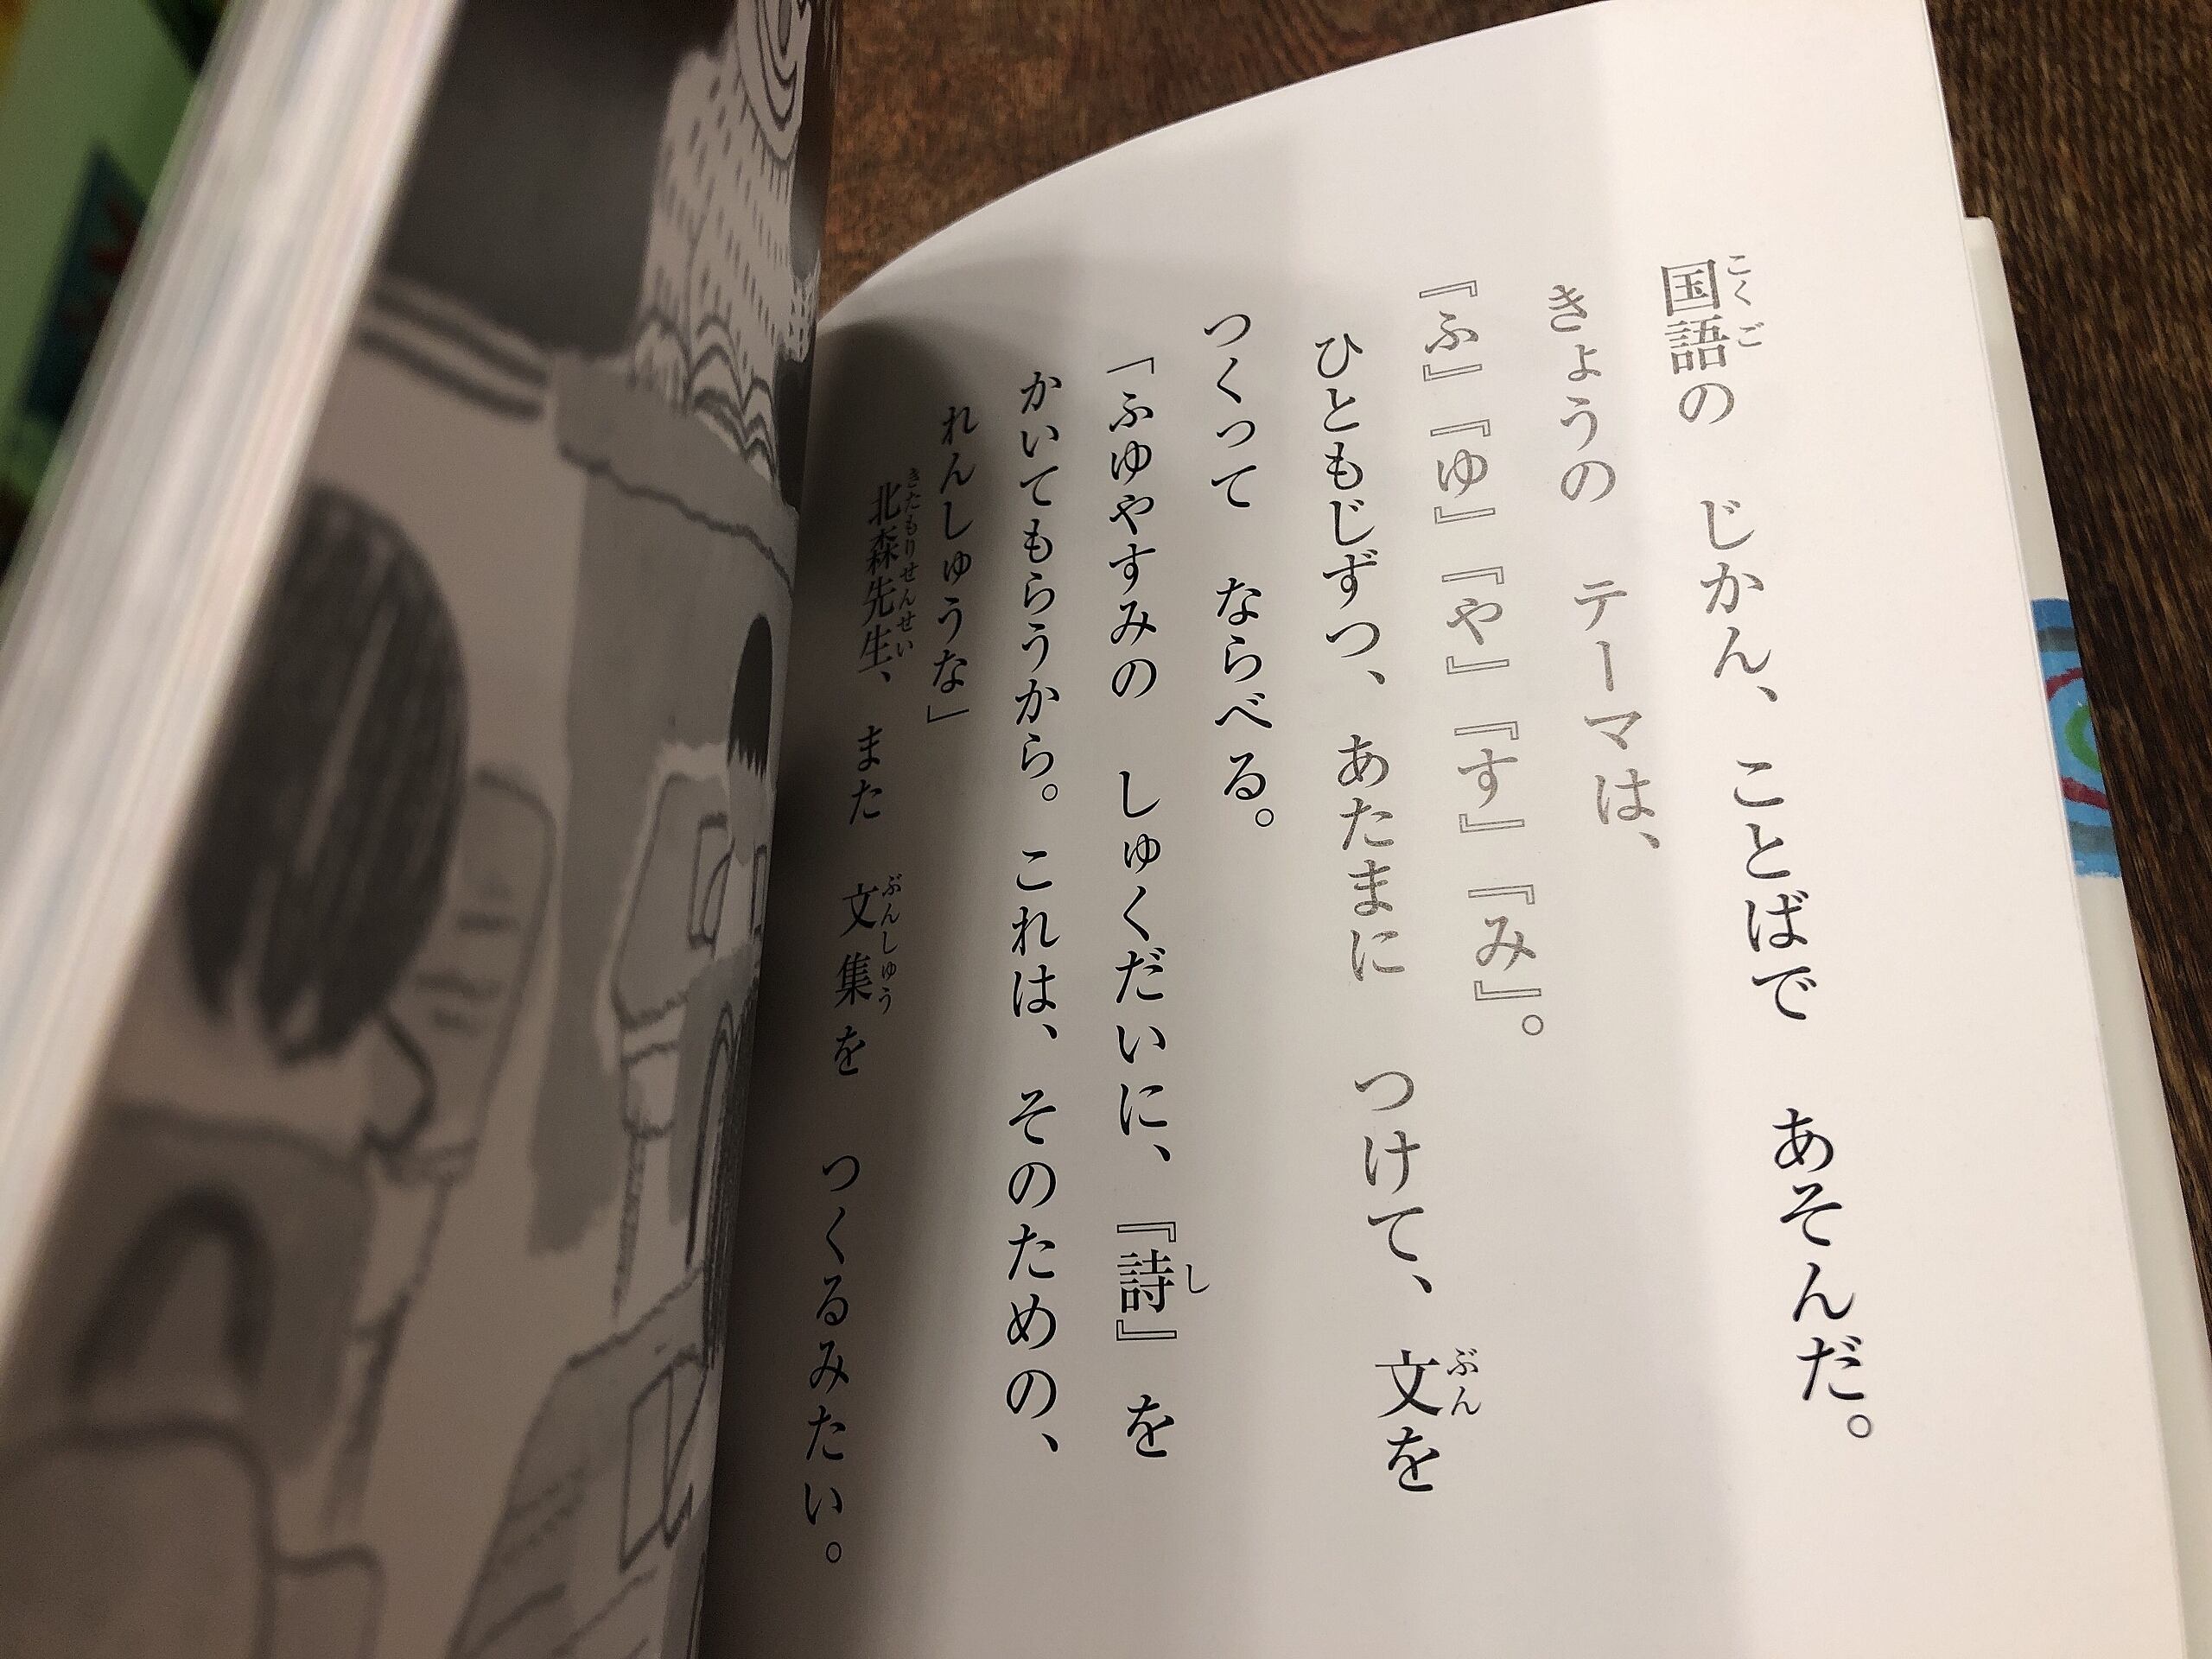 国語の　じかん、ことばで　あそんだ。
きょうの　テーマは、
『ふ』『ゆ』『や』『す』『み』。
ひともじずつ、あたまに　つけて、文を
つくって　ならべる。
「ふゆやすみの　しゅくだいに、『詩』を
かいてもらうから。これは、そのための、
れんしゅうな」
北森先生、また　文集を　つくるみたい。